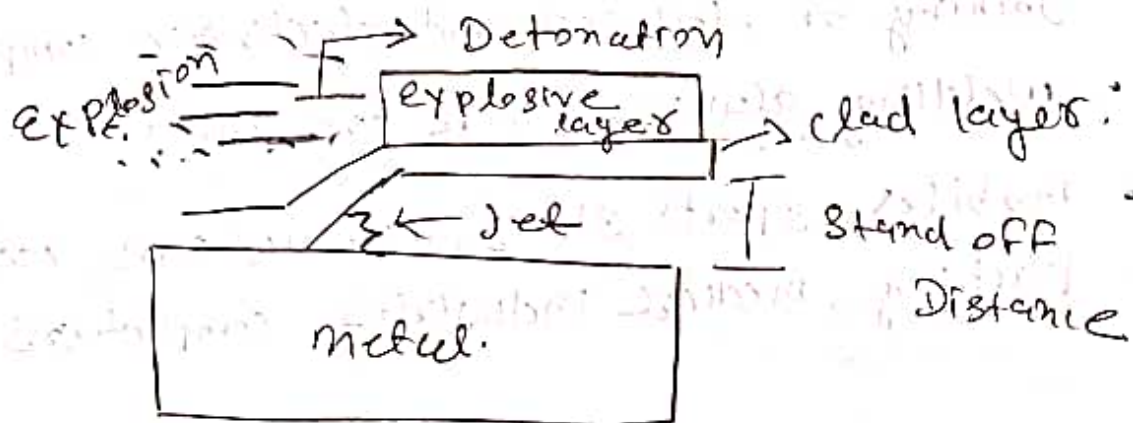 Detonation
Explosion
explosive
layer
clad layer.
Jet
Stand off
Distance
Metal.